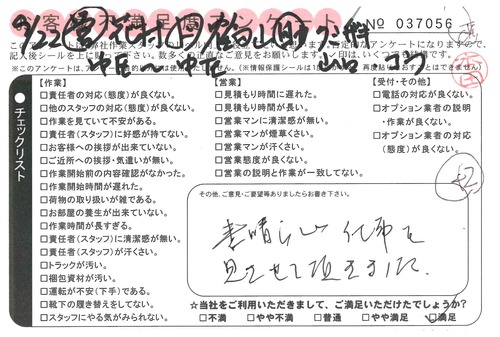 お客様不満足度アンケート No 037056
チェックリスト
【作業】
□責任者の対応(態度)が良くない。
□他のスタッフの対応(態度)が良くない。
□作業を見ていて不安がある。
□責任者(スタッフ)に好感が持てない。
□お客様への挨拶が出来ていない。
□ご近所への挨拶・気遣いが無い。
□作業開始前の内容確認がなかった。
□作業開始時間が遅れた。
□荷物の取り扱いが雑である。
□お部屋の養生が出来ていない。
□作業時間が長すぎる。
□責任者(スタッフ)に清潔感が無い。
□責任者(スタッフ)が汗くさい。
□トラックが汚い。
□梱包資材が汚い。
□運転が不安(下手)である。
□靴下の履き替えをしてない。
□スタッフにやる気がみられない。
【営業】
□見積もり時間に遅れた。
□見積もり時間が長い。
□営業マンに清潔感が無い。
□営業マンが煙草くさい。
□営業マンが汗くさい。
□営業態度が良くない。
□営業の説明と作業が一致してない。
【受付・その他】
□電話の対応が良くない。
□オプション業者の説明
・作業が良くない。
□オプション業者の対応
(態度)が良くない。
その他、ご意見・ご要望等ありましたらお書き下さい。
素晴らしい仕事を
見させて頂きました。
☆当社をご利用いただきまして、ご満足いただけたでしょうか?
□不満 □やや不満 □普通 □やや満足 □満足